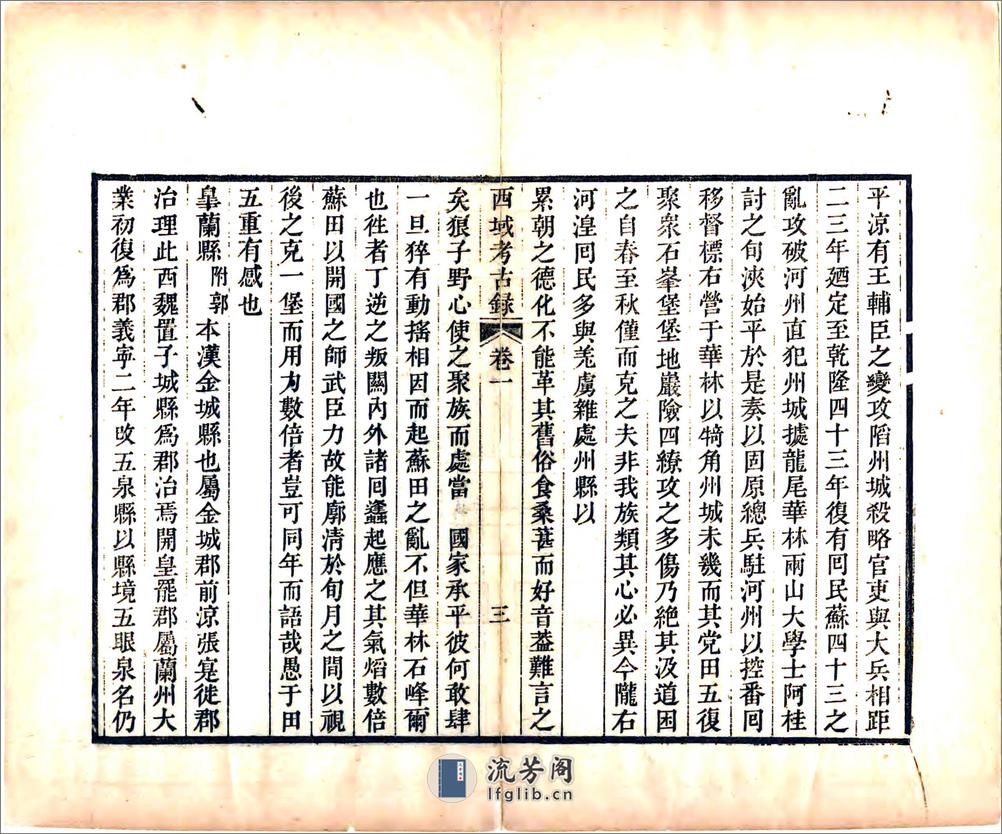 平涼有王輔臣之變攻䧟州城殺略官吏與大兵相距
二三年廼定至乾隆四十三年復有囘民蘇四十三之
亂攻破河州直犯州城據龍尾華林兩山大學士阿桂
討之旬浹始平於是奏以固原總兵駐河州以控番囘
移督標右營于華林以犄角州城未幾而其党田五復
聚衆石峯堡堡地巖險四繚攻之多傷乃絕其汲道困
之自春至秋僅而克之夫非我族類其心必異今隴右
河湟囘民多與羌虜雜處州縣以
累朝之德化不能革其舊俗食桑葚而好音葢難言之
西域考古録 卷一 三
矣狼子野心使之聚族而處當 國家承平彼何敢肆
一旦猝有動搖相因而起蘇田之亂不但華林石峰爾
也徃者丁逆之叛關內外諸囘蠭起應之其氣熖數倍
蘇田以開國之師武臣力故能廓清於旬月之間以視
後之克一堡而用力數倍者豈可同年而語哉愚于田
五重有感也
臯蘭縣 附郭 本漢金城縣也屬金城郡前涼張寔徙郡
治理此西魏置子城縣爲郡治焉開皇罷郡屬蘭州大
業初復爲郡義寧二年改五泉縣以縣境五眼泉名仍
流芳阁
lfglib.cn